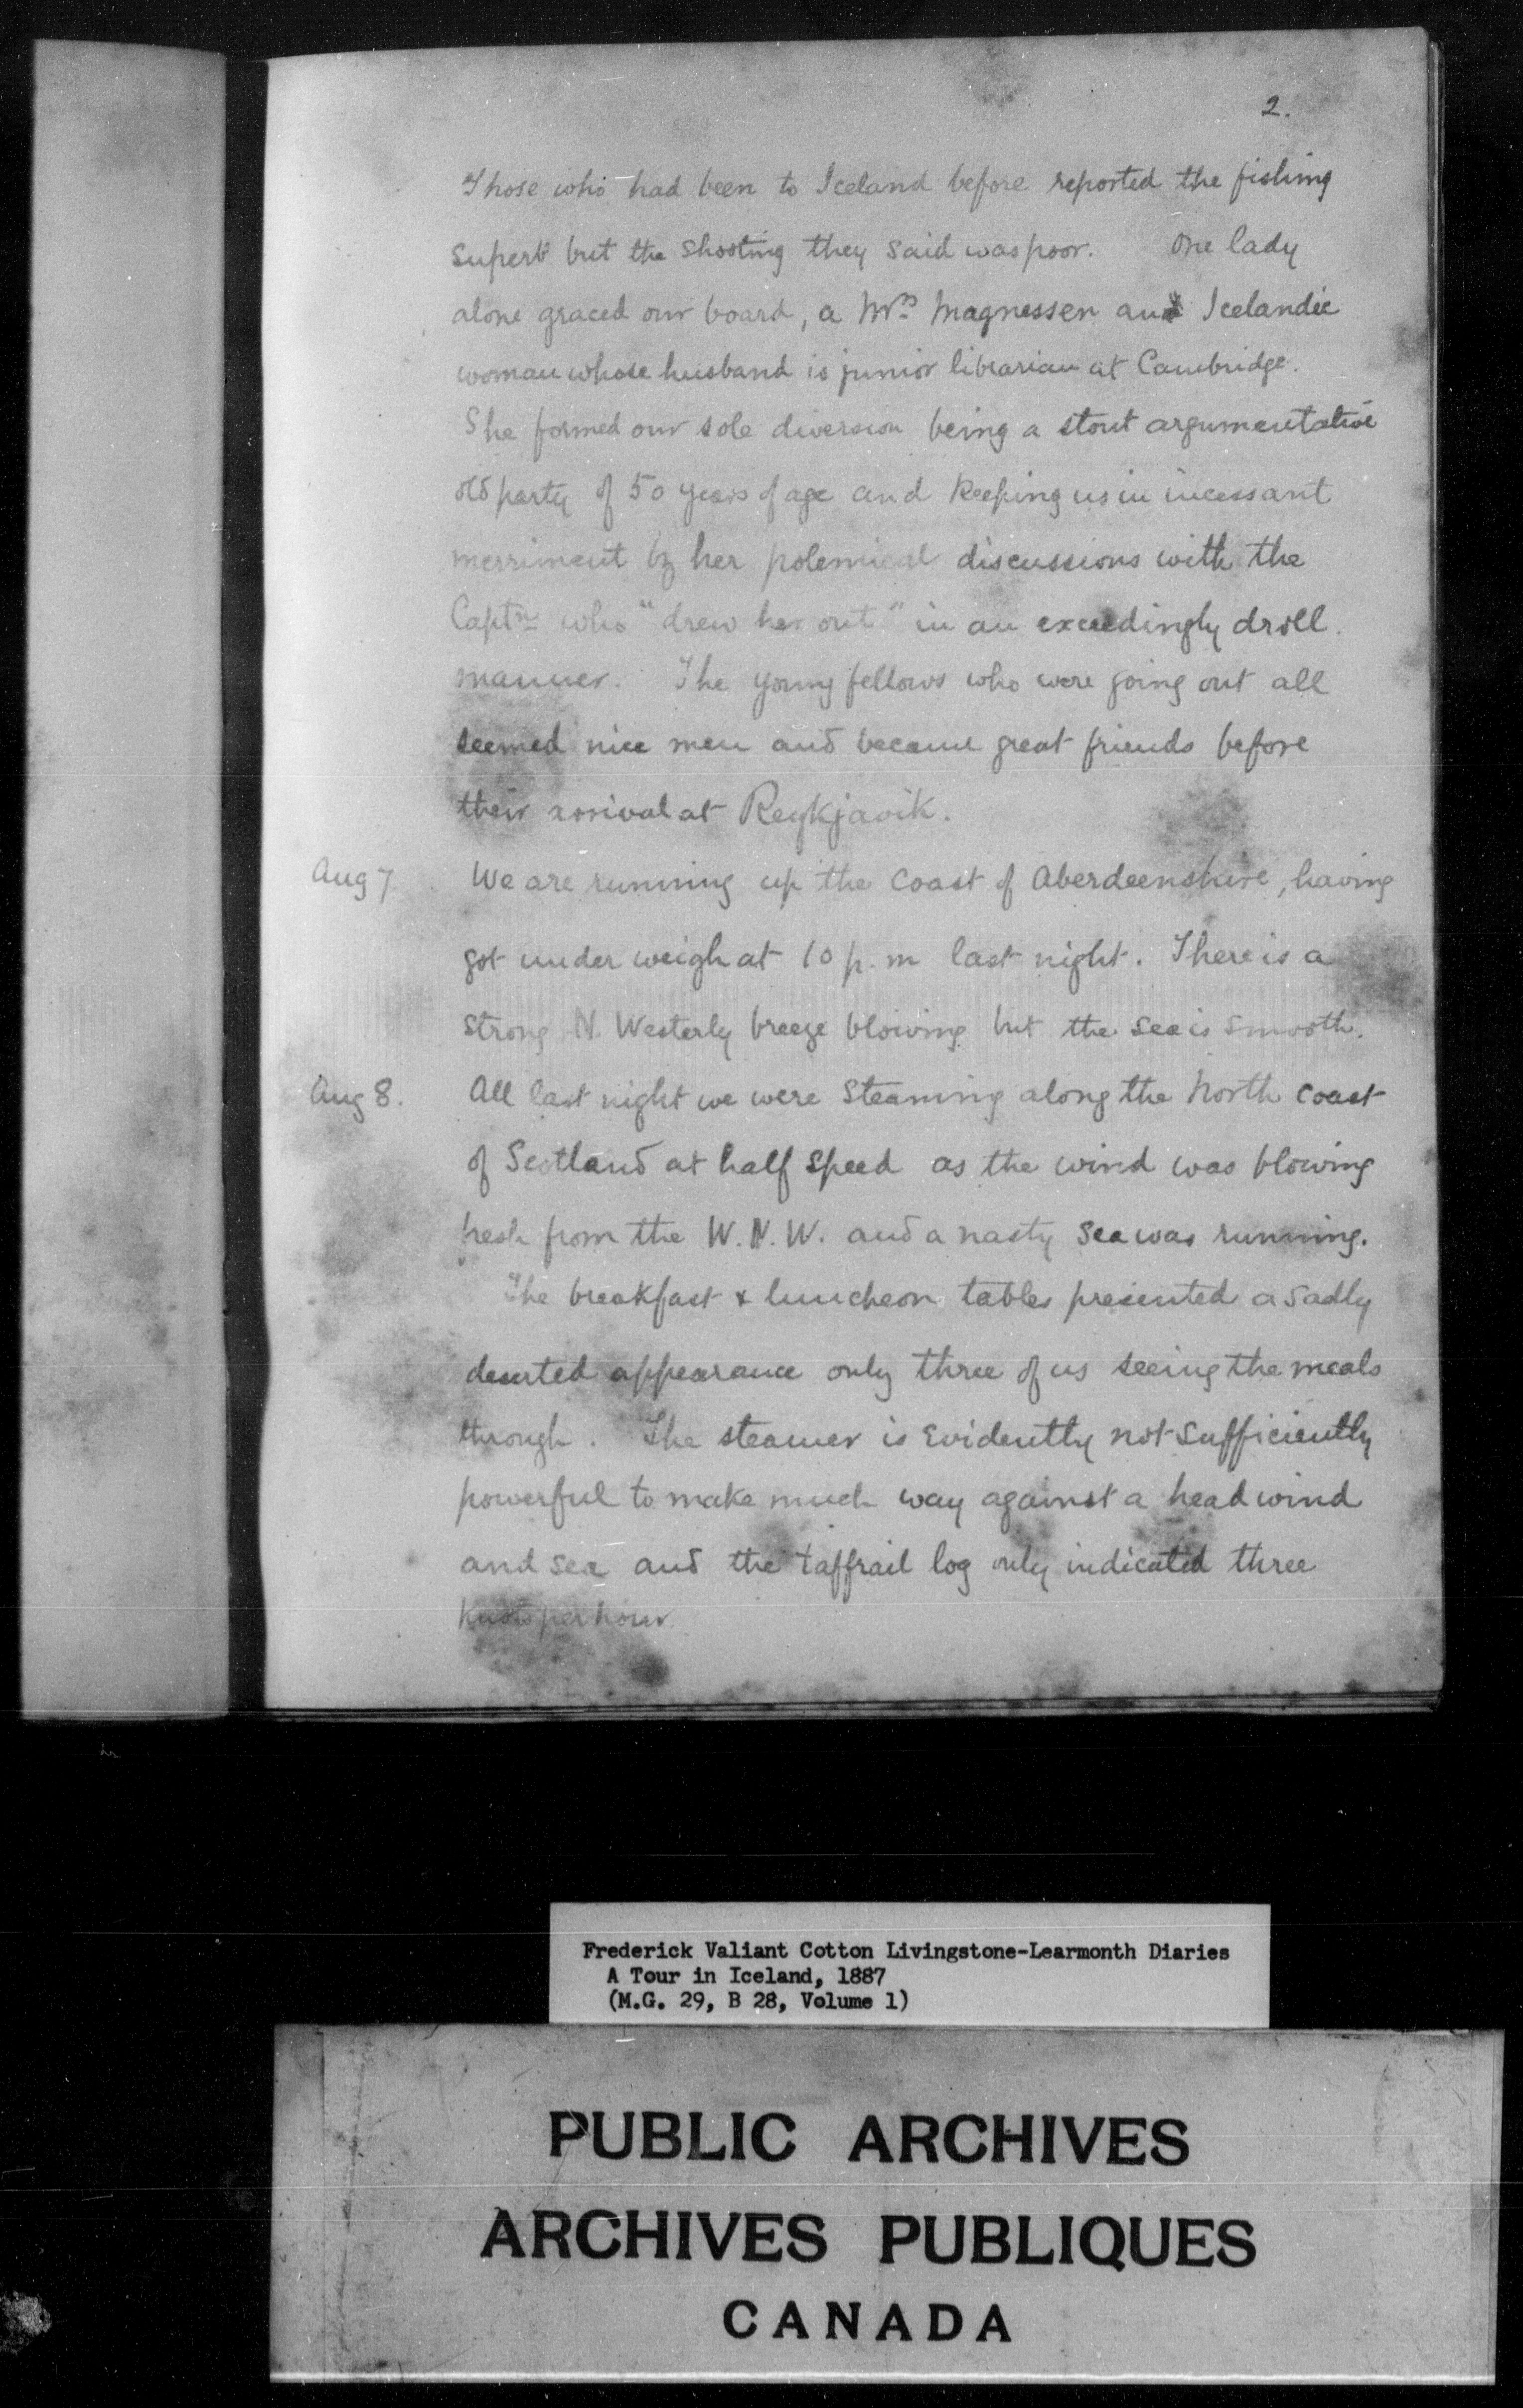 2.
Those who had been to Iceland before reported the fishing
superb but the shooting they said was poor. One lady
alone graced our board, a Mrs. Magnessen an Icelandic
woman whose husband is junior librarian at Cambridge.
She formed our sole diversion being a stout argumentative
old party of 50 years of age and keeping us in incessant
merriment by her polemical discussions with the
Captn who "drew her out" in an exceedingly droll
manner. The young fellows who were going out all
seemed nice men and became great friends before
their arrival at Reykjavik.
Aug 7 We are running up the coast of Aberdeenshire, having
got under weigh at 10 p.m last night. There is a
strong N. Westerly breeze blowing but the sea is smooth.
Aug 8. All last night we were steaming along the North coast
of Scotland at half speed as the wind was blowing
fresh from the W.N.W. and a nasty sea was running.
The breakfast & luncheon tables presented a sadly
deserted appearance only three of us seeing the meals
through. The steamer is evidently not sufficiently
powerful to make much way against a head wind
and sea and the taffrail log only indicated three
knots per hour.
Frederick Valiant Cotton Livingstone-Learmonth Diaries
A Tour in Iceland, 1887
(M.G. 29, B 28, Volume 1)
PUBLIC ARCHIVES
ARCHIVES PUBLIQUES
CANADA